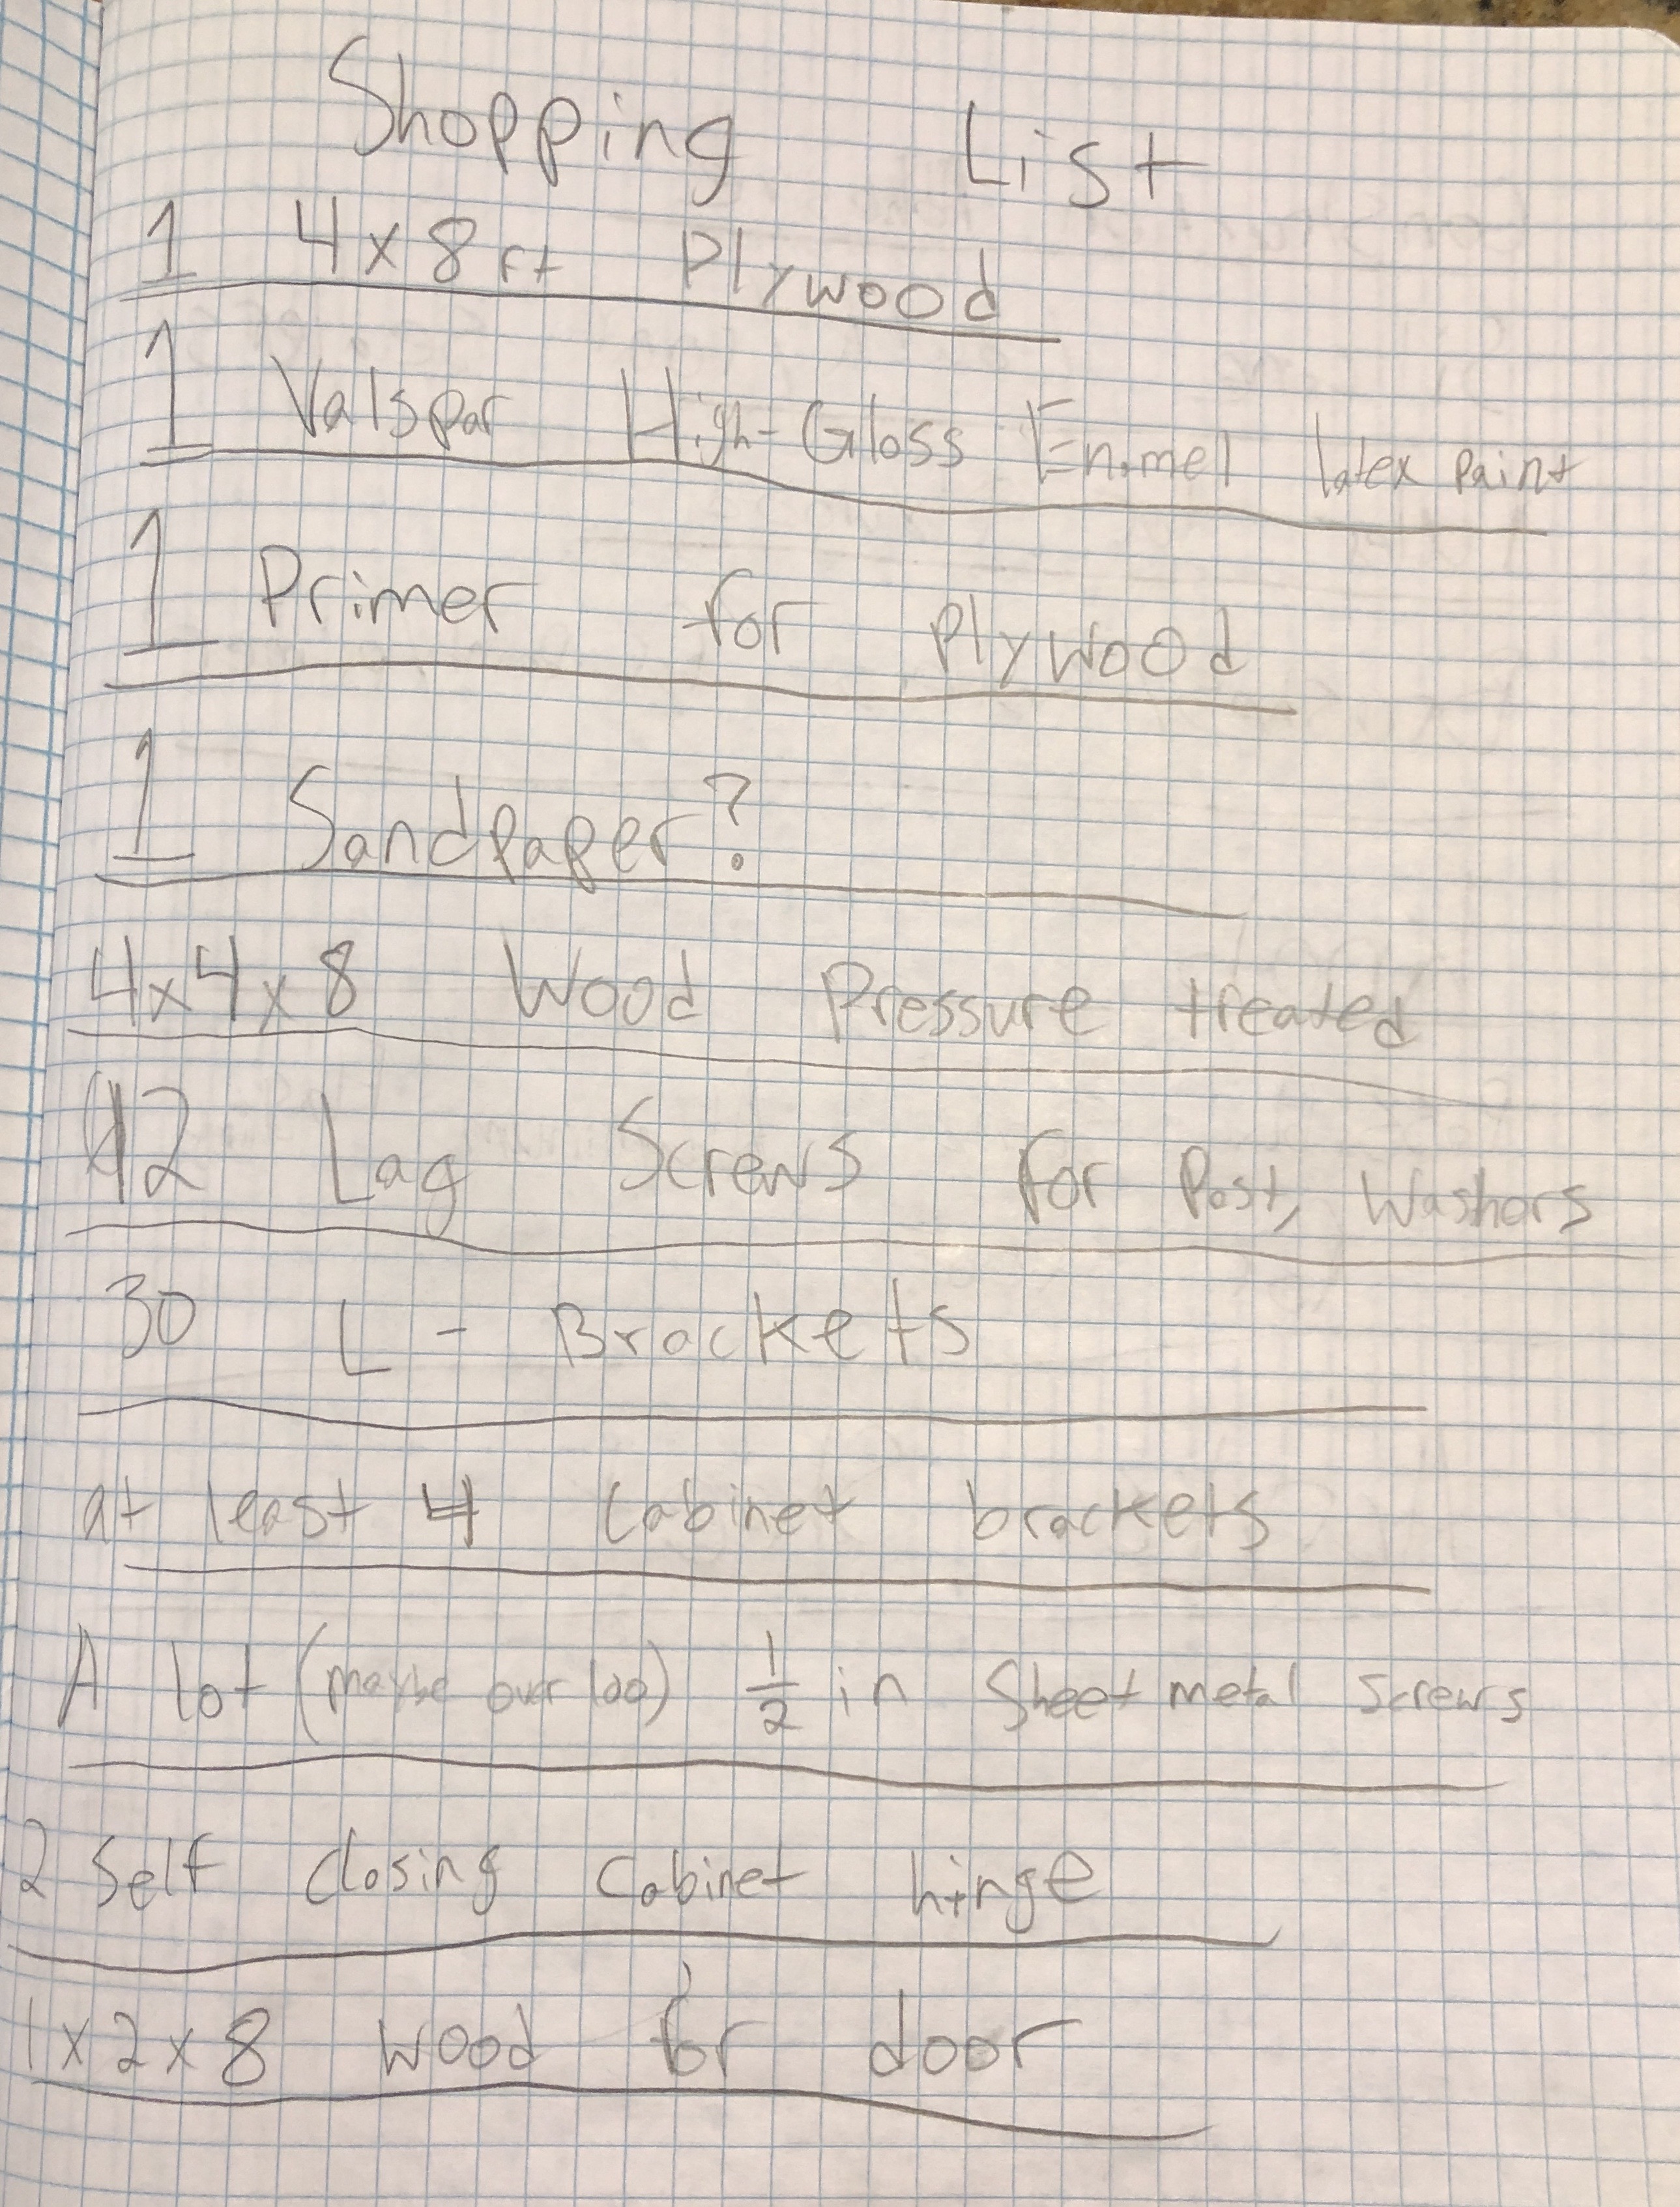 Shopping List
1 4x8 ft Plywood
1 Valspar High-Gloss Enamel latex paint
1 Primer for Plywood
1 Sandpaper?
4x4x8 Wood Pressure treated
12 Lag Screws for Post, Washors
30 L - Brackets
at least 4 Cabinet brackets
A lot (maybe over 100) 1/2 in Sheet metal screws
2 Self closing Cabinet hinge
1x2x8 wood for door